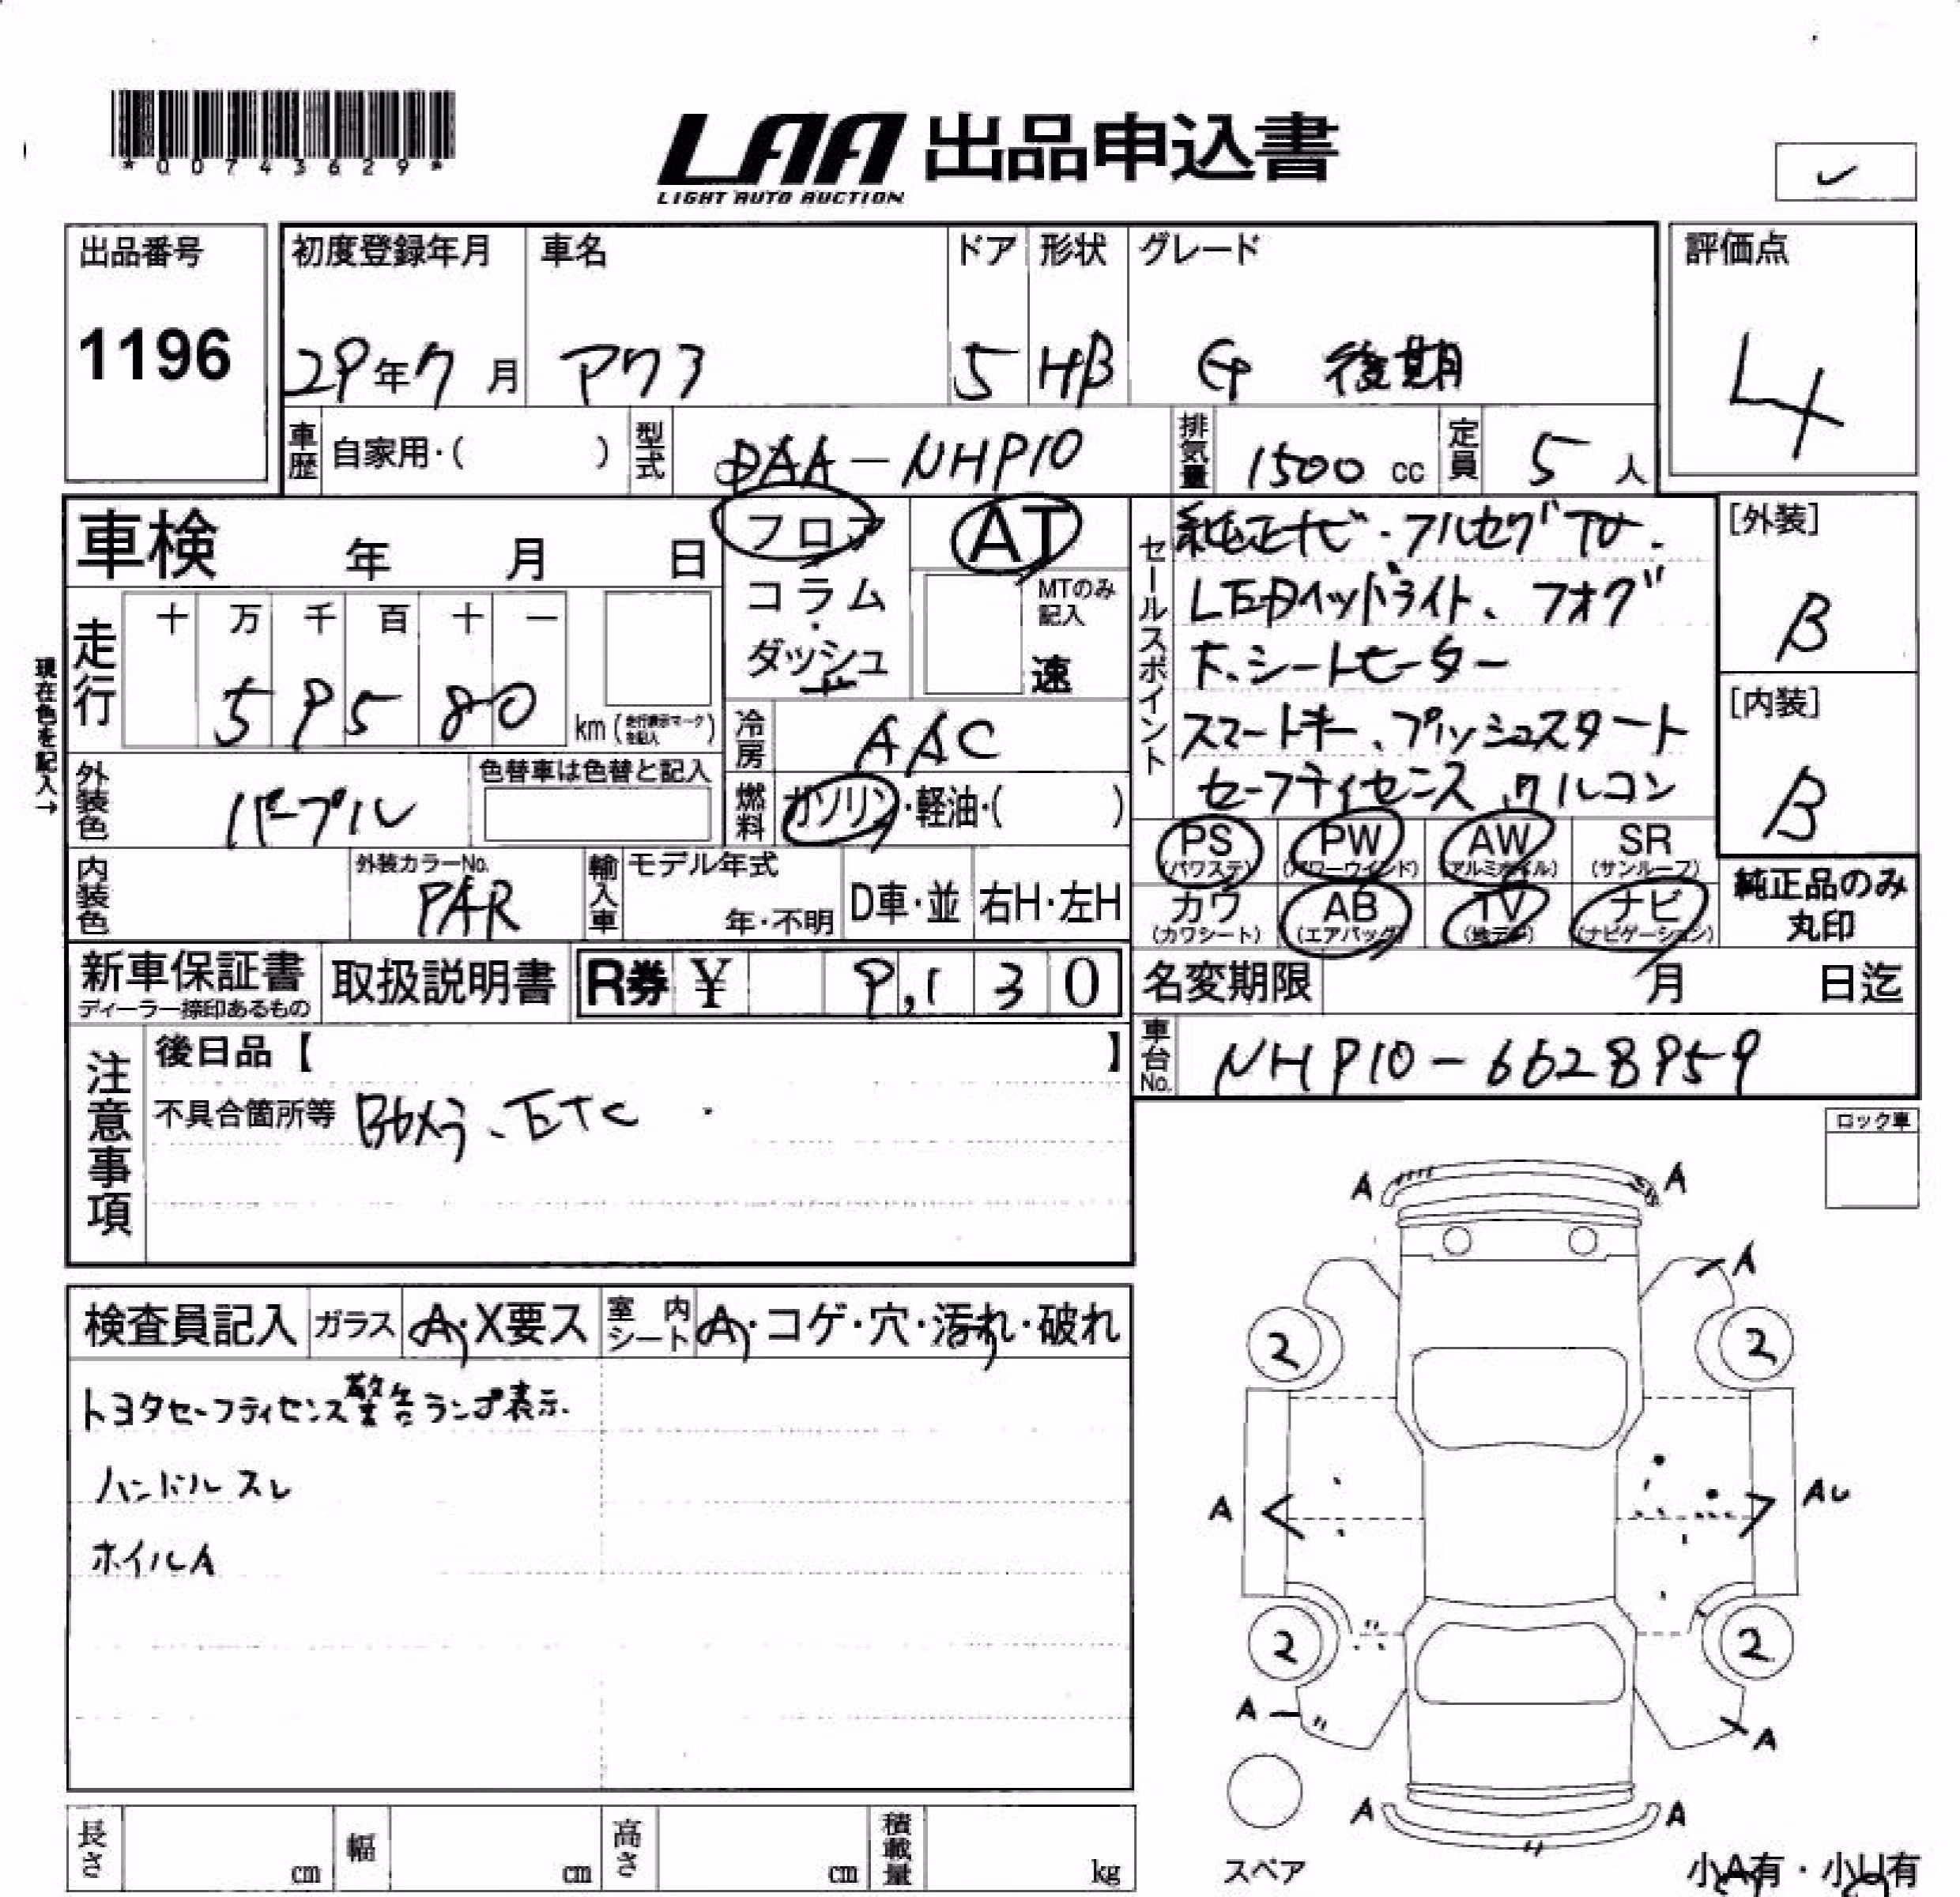 *00743629*
LAA 出品申込書
LIGHT AUTO AUCTION
出品番号
1196
初度登録年月
29年7月
車名
アクア
ドア
5
形状
HB
グレード
G 後期
評価点
4
車歴 自家用・( )
型式 DAA-NHP10
排気量 1500 cc
定員 5 人
車検 年 月 日
フロア
コラム
・
ダッシュ
AT
MTのみ記入
速
セールスポイント
純正ナビ・フルセグTV.
LEDヘッドライト、フォグ
下、シートヒーター
スマートキー、プッシュスタート
セーフティセンス クルコン
[外装]
B
[内装]
B
現在色を記入→
走行 十 万 千 百 十 一
5 9 5 8 0 km (走行表示マークを記入)
冷房 AAC
外装色 パープル
色替車は色替と記入
燃料 ガソリン・軽油・( )
内装色
外装カラーNo.
PAR
輸入車
モデル年式
年・不明
D車・並
右H・左H
PS (パワステ)
PW (パワーウインド)
AW (アルミホイル)
SR (サンルーフ)
カワ (カワシート)
AB (エアバッグ)
TV (地デジ)
ナビ (ナビゲーション)
純正品のみ
丸印
新車保証書
ディーラー捺印あるもの
取扱説明書
R券 ¥ 9,130
名変期限 月 日迄
車台No. NHP10-6628959
注意事項
後日品【 】
不具合箇所等 Bカメラ、ETC
ロック車
検査員記入
ガラス A・X要ス
室内シート A・コゲ・穴・汚れ・破れ
トヨタセーフティセンス警告ランプ表示.
ハンドルスレ
ホイルA
A A
A
2 2
A AU
2 2
A A
A A
スペア
小A有・小U有
長さ cm
幅 cm
高さ cm
積載量 kg